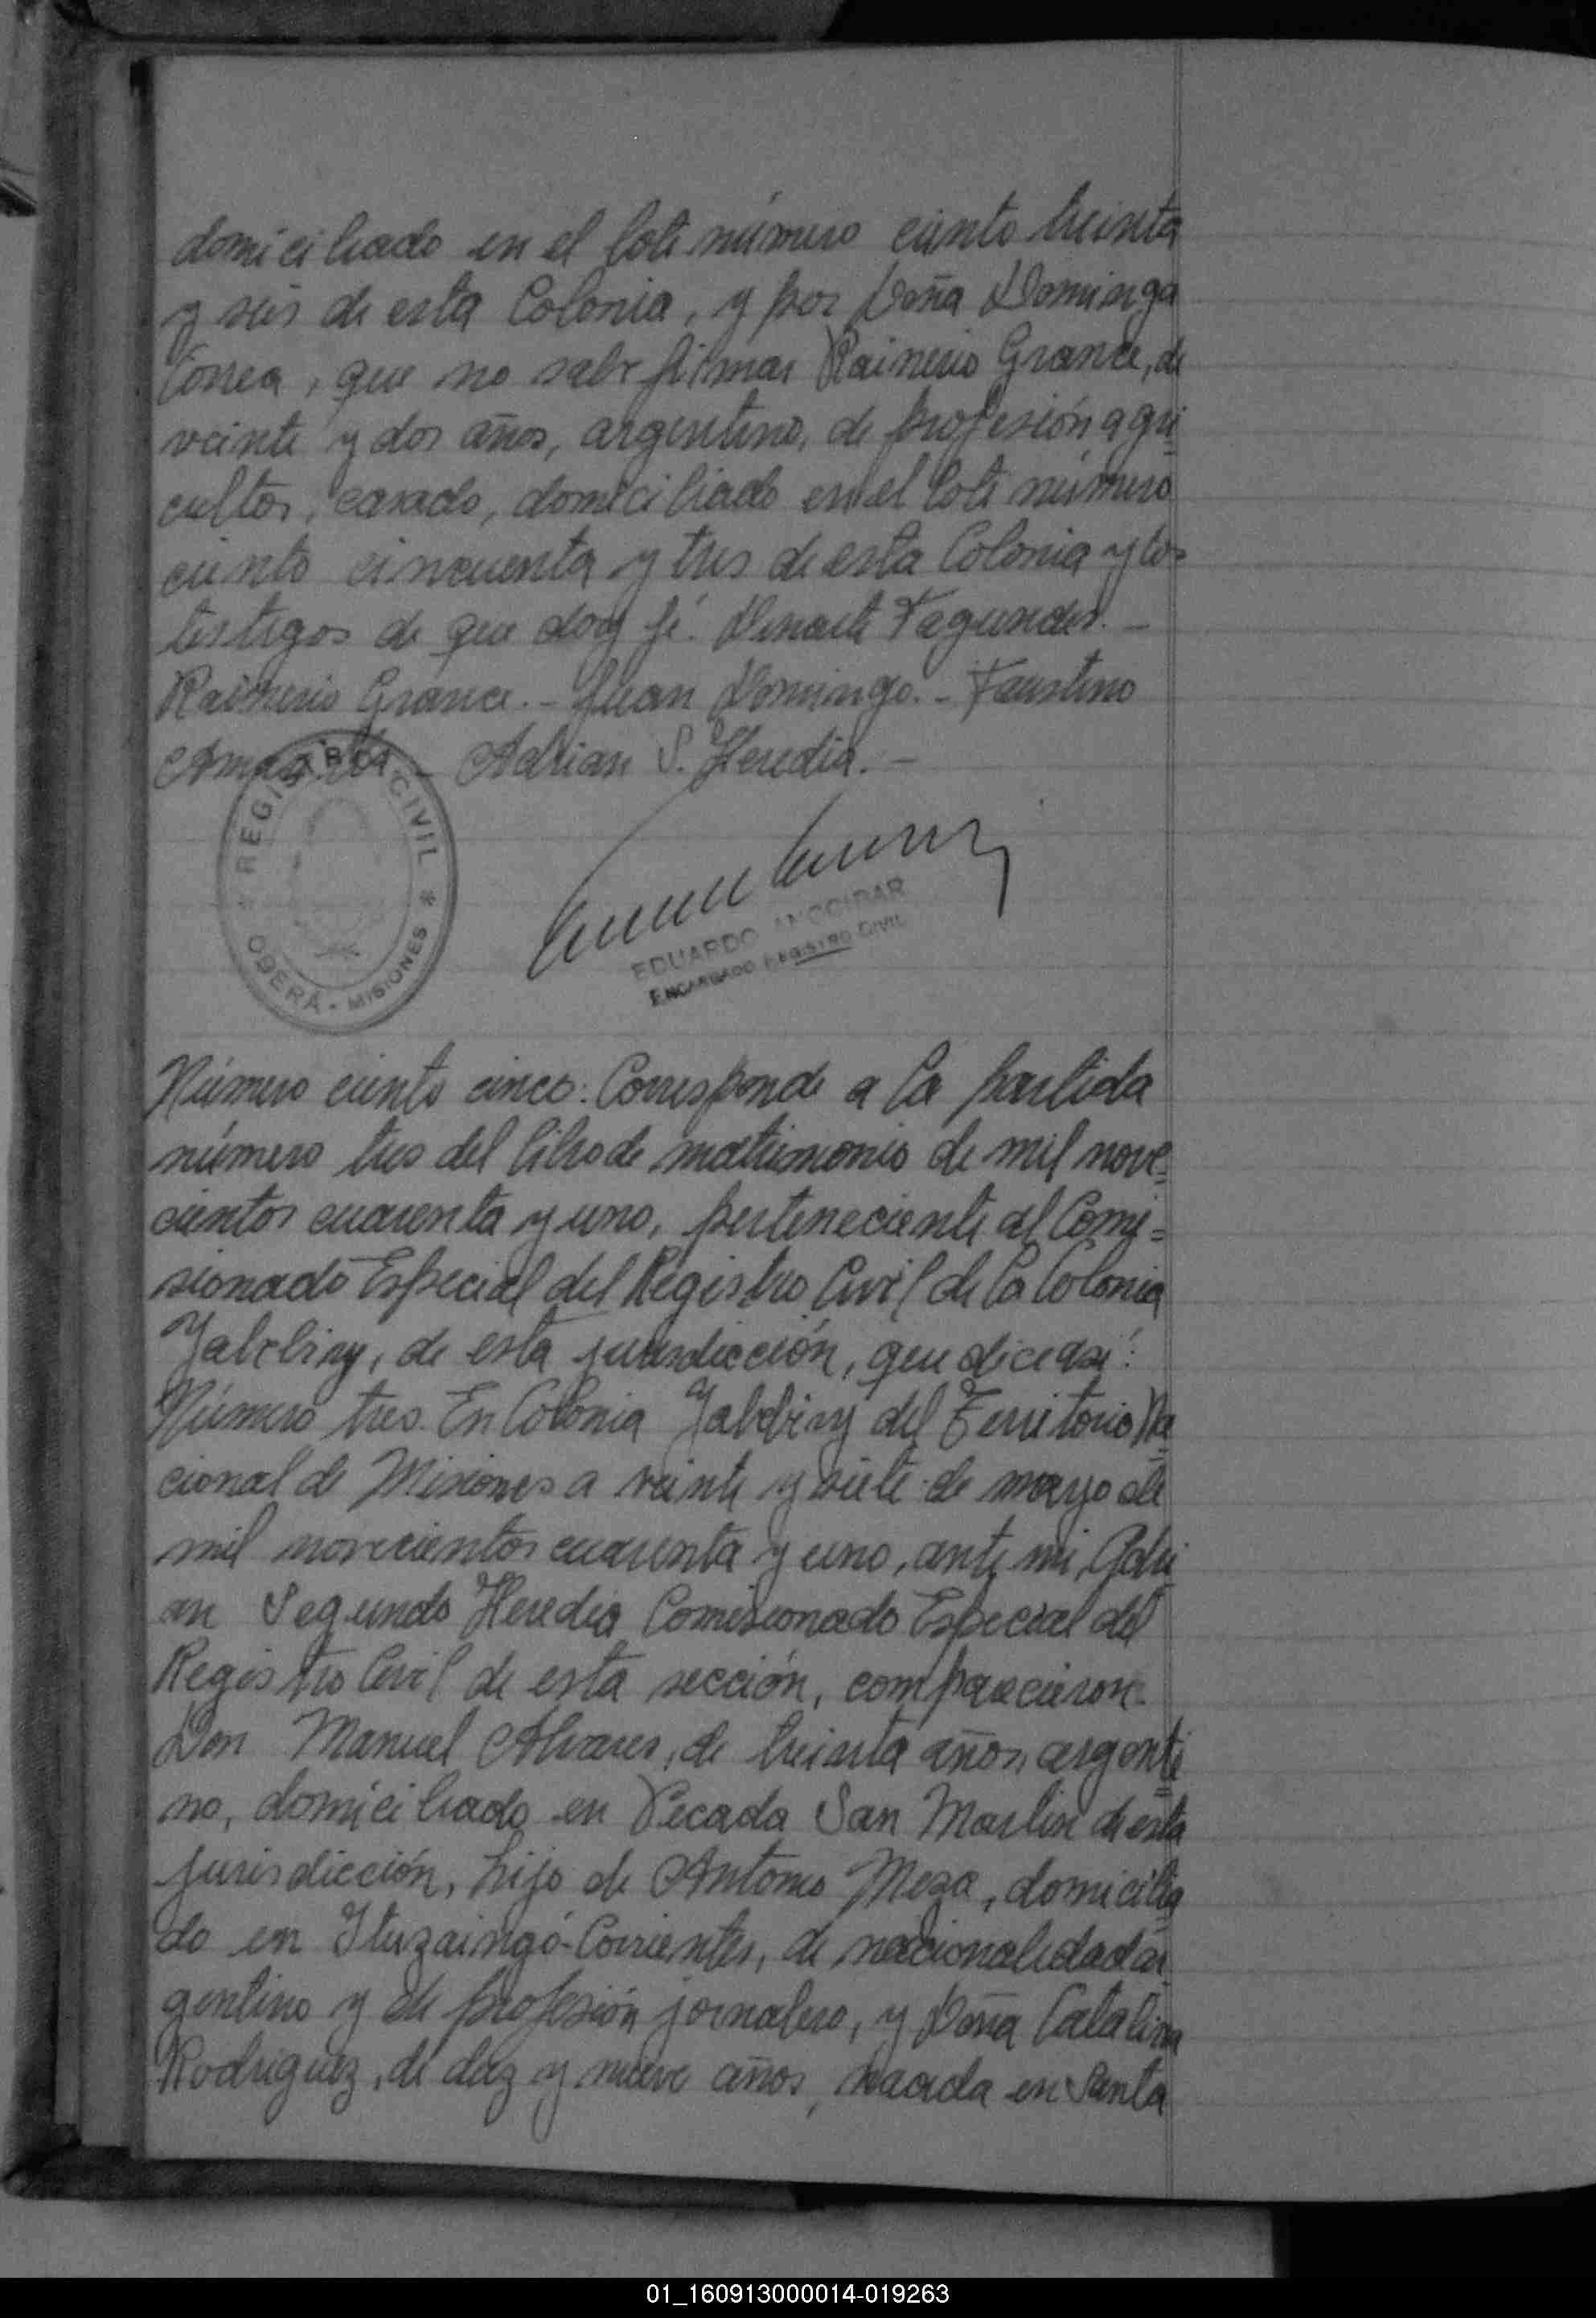 domiciliado en el lote número ciento treinta
y seis de esta Colonia, y por Doña Dominga
Correa, que no sabe firmar Rainerio Grance, de
veinte y dos años, argentino, de profesión agri
cultor, casado, domiciliado en el lote número
ciento cincuenta y tres de esta Colonia y los
testigos de que doy fé. Fagundes. -
Rainerio Grance. - Juan Domingo. - Faustino
- Adrian S. Heredia. -
REGISTRO CIVIL
OBERÁ - MISIONES
EDUARDO
ENCARGADO REGISTRO CIVIL
Número ciento cinco: Corresponde a la partida
número tres del libro de matrimonio de mil nove=
cientos cuarenta y uno, perteneciente al Comi=
sionado Especial del Registro Civil de la Colonia
Yabebiry, de esta jurisdicción, que dice asi:
Número tres. En Colonia Yabebiry del Territorio Na
cional de Misiones a veinte y siete de mayo de
mil novecientos cuarenta y uno, ante mi, Adri
an Segundo Heredia Comisionado Especial del
Registro Civil de esta sección, comparecieron
Don Manuel Alvares, de treinta años, argenti
no, domiciliado en Picada San Martin de esta
jurisdicción, hijo de Antonio Meza, domicilia
do en Ituzaingó-Corrientes, de nacionalidad ar
gentino y de profesión jornalero, y Doña Catalina
Rodriguez, de diez y nueve años, nacida en Santa
01_160913000014-019263